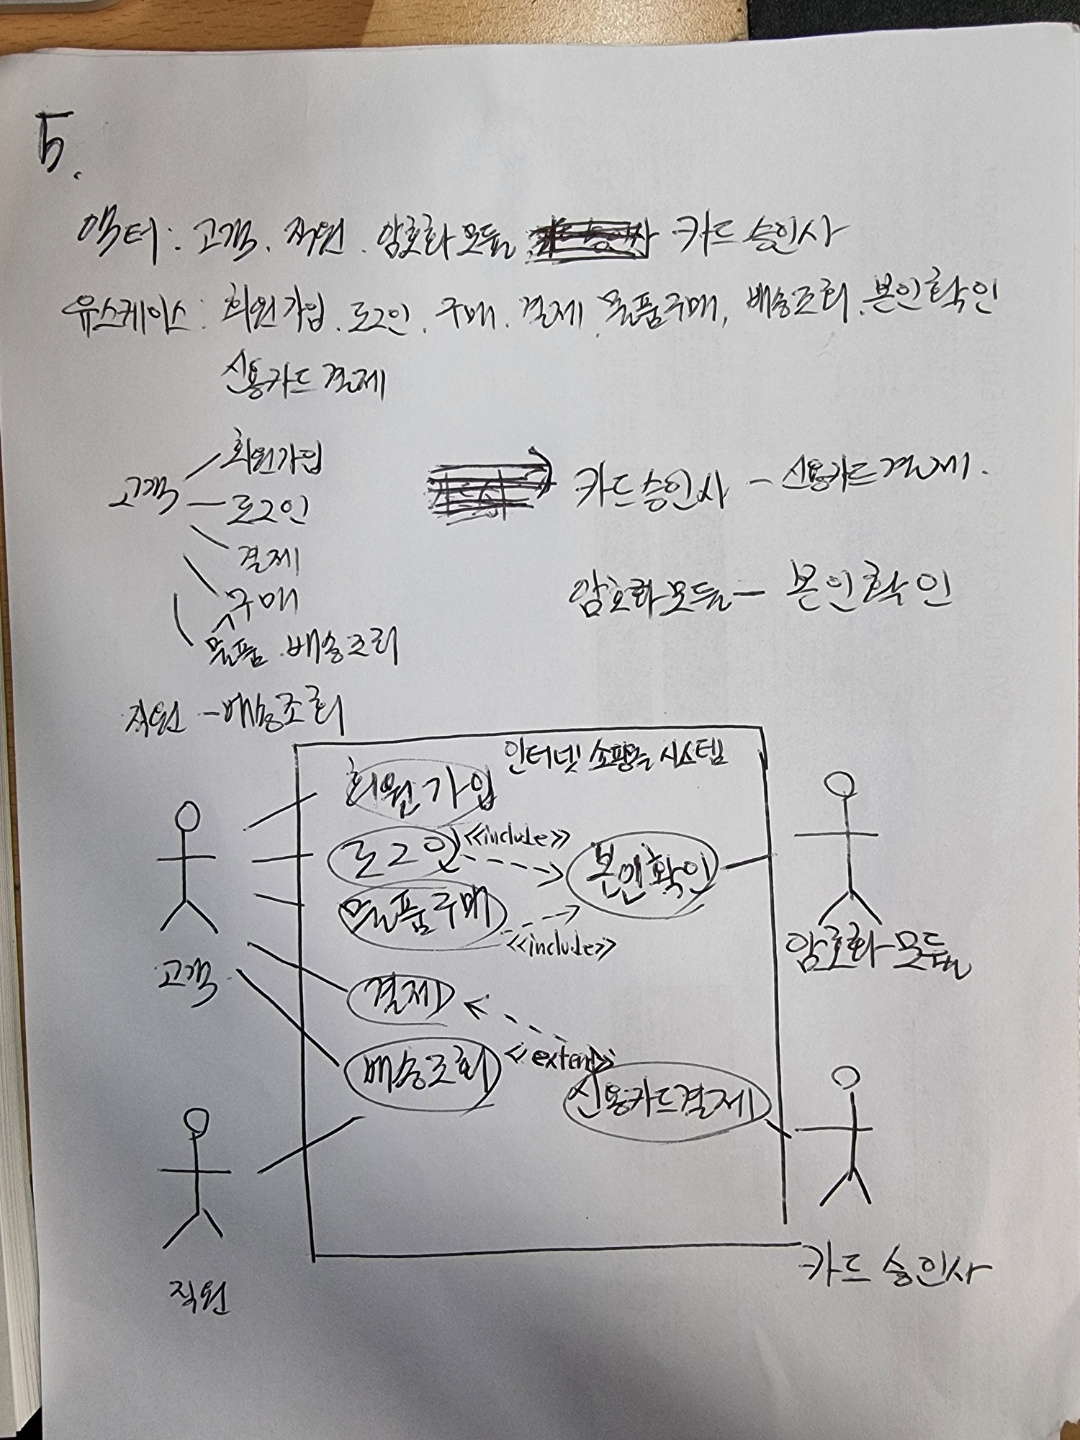 5.
액터: 고객. 직원. 암호화모듈 카드승인사
유스케이스: 회원가입. 로그인. 구매. 결제. 물품구매, 배송조회. 본인확인
신용카드결제
고객
회원가입
로그인
결제
구매
물품. 배송조회
카드승인사 - 신용카드결제.
암호화모듈 - 본인확인
직원 - 배송조회
인터넷 쇼핑몰 시스템
회원가입
로그인
<<include>>
본인확인
물품구매
<<include>>
고객
암호화모듈
결제
배송조회
<<extend>>
신용카드결제
직원
카드승인사